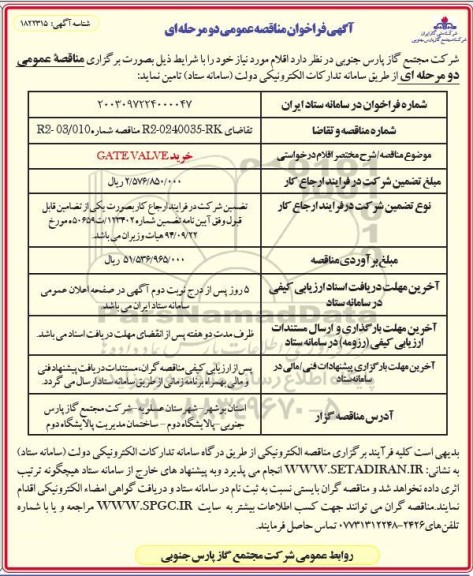 شناسه آگهی: ۱۸۲۲۳۱۵
آگهی فراخوان مناقصه عمومی دو مرحله ای
شرکت مجتمع گاز پارس جنوبی در نظر دارد اقلام مورد نیاز خود را با شرایط ذیل بصورت برگزاری مناقصهٔ عمومی
دو مرحله ای از طریق سامانه تدارکات الکترونیکی دولت (سامانه ستاد) تامین نماید:
شماره فراخوان در سامانه ستاد ایران
۲۰۰۳۰۹۷۲۲۴۰۰۰۰۴۷
شماره مناقصه و تقاضا
تقاضای R2-0240035-RK مناقصه شماره R2- 03/010
موضوع مناقصه/شرح مختصر اقلام درخواستی
خرید GATE VALVE
مبلغ تضمین شرکت در فرایند ارجاع کار
۲/۵۷۶/۸۵۰/۰۰۰ ریال
نوع تضمین شرکت در فرایند ارجاع کار
تضمین شرکت در فرایند ارجاع کار بصورت یکی از تضامین قابل
قبول وفق آیین نامه تضمین شماره ۱۲۳۴۰۲/ت۵۰۶۵۹ه مورخ
۹۴/۰۹/۲۲ هیات وزیران می باشد.
مبلغ برآوردی مناقصه
۵۱/۵۳۶/۹۶۵/۰۰۰ ریال
آخرین مهلت دریافت اسناد ارزیابی کیفی
در سامانه ستاد
۵ روز پس از درج نوبت دوم آگهی در صفحه اعلان عمومی
سامانه ستاد ایران می باشد.
آخرین مهلت بارگذاری و ارسال مستندات
ارزیابی کیفی (رزومه) در سامانه ستاد
ظرف مدت دو هفته پس از انقضای مهلت دریافت اسناد می باشد.
آخرین مهلت بارگزاری پیشنهادات فنی/مالی در
سامانه ستاد
پس از ارزیابی کیفی مناقصه گران، مستندات دریافت پیشنهاد فنی
و مالی بهمراه برنامه زمانی از طریق سامانه ستاد ارسال می گردد.
آدرس مناقصه گزار
استان بوشهر- شهرستان عسلویه - شرکت مجتمع گاز پارس
جنوبی- پالایشگاه دوم - ساختمان مدیریت پالایشگاه دوم
بدیهی است کلیه فرآیند برگزاری مناقصه الکترونیکی از طریق درگاه سامانه تدارکات الکترونیکی دولت (سامانه ستاد)
به نشانی: WWW.SETADIRAN.IR انجام می پذیرد و به پیشنهاد های خارج از سامانه ستاد هیچگونه ترتیب
اثری داده نخواهد شد و مناقصه گران بایستی نسبت به ثبت نام در سامانه ستاد و دریافت گواهی امضاء الکترونیکی اقدام
نمایند. مناقصه گران می توانند جهت کسب اطلاعات بیشتر به سایت WWW.SPGC.IR مراجعه و یا با شماره
تلفن های ۲۴۲۶-۰۷۷۳۱۳۱۲۲۴۸ تماس حاصل فرمایند.
روابط عمومی شرکت مجتمع گاز پارس جنوبی